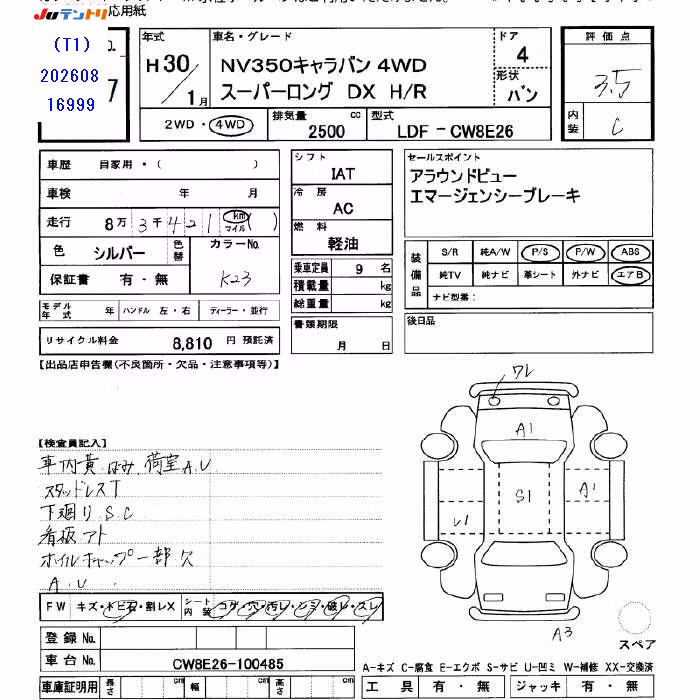 応用紙
JUテントリ
(T1)
202608
16999
No.
7
年式
H30/1月
車名・グレード
NV350キャラバン 4WD
スーパーロング DX H/R
ドア
4
形状
バン
評価点
3.5
内装
C
2WD・4WD
排気量 2500 cc
型式 LDF-CW8E26
車歴 自家用・( )
車検 年 月
走行 8万3千421 km マイル ( )
色 シルバー 色替
カラーNo. K23
保証書 有・無
モデル年式 年 ハンドル 左・右 ディーラー・並行
リサイクル料金 8,810 円 預託済
シフト
IAT
冷房
AC
燃料
軽油
乗車定員 9 名
積載量 kg
総重量 kg
書類期限
月 日
セールスポイント
アラウンドビュー
エマージェンシーブレーキ
装備品
S/R 純A/W P/S P/W ABS
純TV 純ナビ 革シート 外ナビ エアB
ナビ型番:
後日品
【出品店申告欄(不良箇所・欠品・注意事項等)】
【検査員記入】
車内黄ばみ 荷室A.U
スタッドレスT
下廻りS.C
看板アト
ホイルキャップ一部欠
A.U.
FW キズ・トビ石・割レX
シート内装 コゲ・穴・汚レ・シミ・破レ・スレ
ワレ
A1
S1
A1
U1
A3
スペア
登録No.
車台No. CW8E26-100485
A-キズ C-腐食 E-エクボ S-サビ U-凹ミ W-補修 XX-交換済
車庫証明用 長さ cm 幅 cm 高さ cm
工具 有・無 ジャッキ 有・無